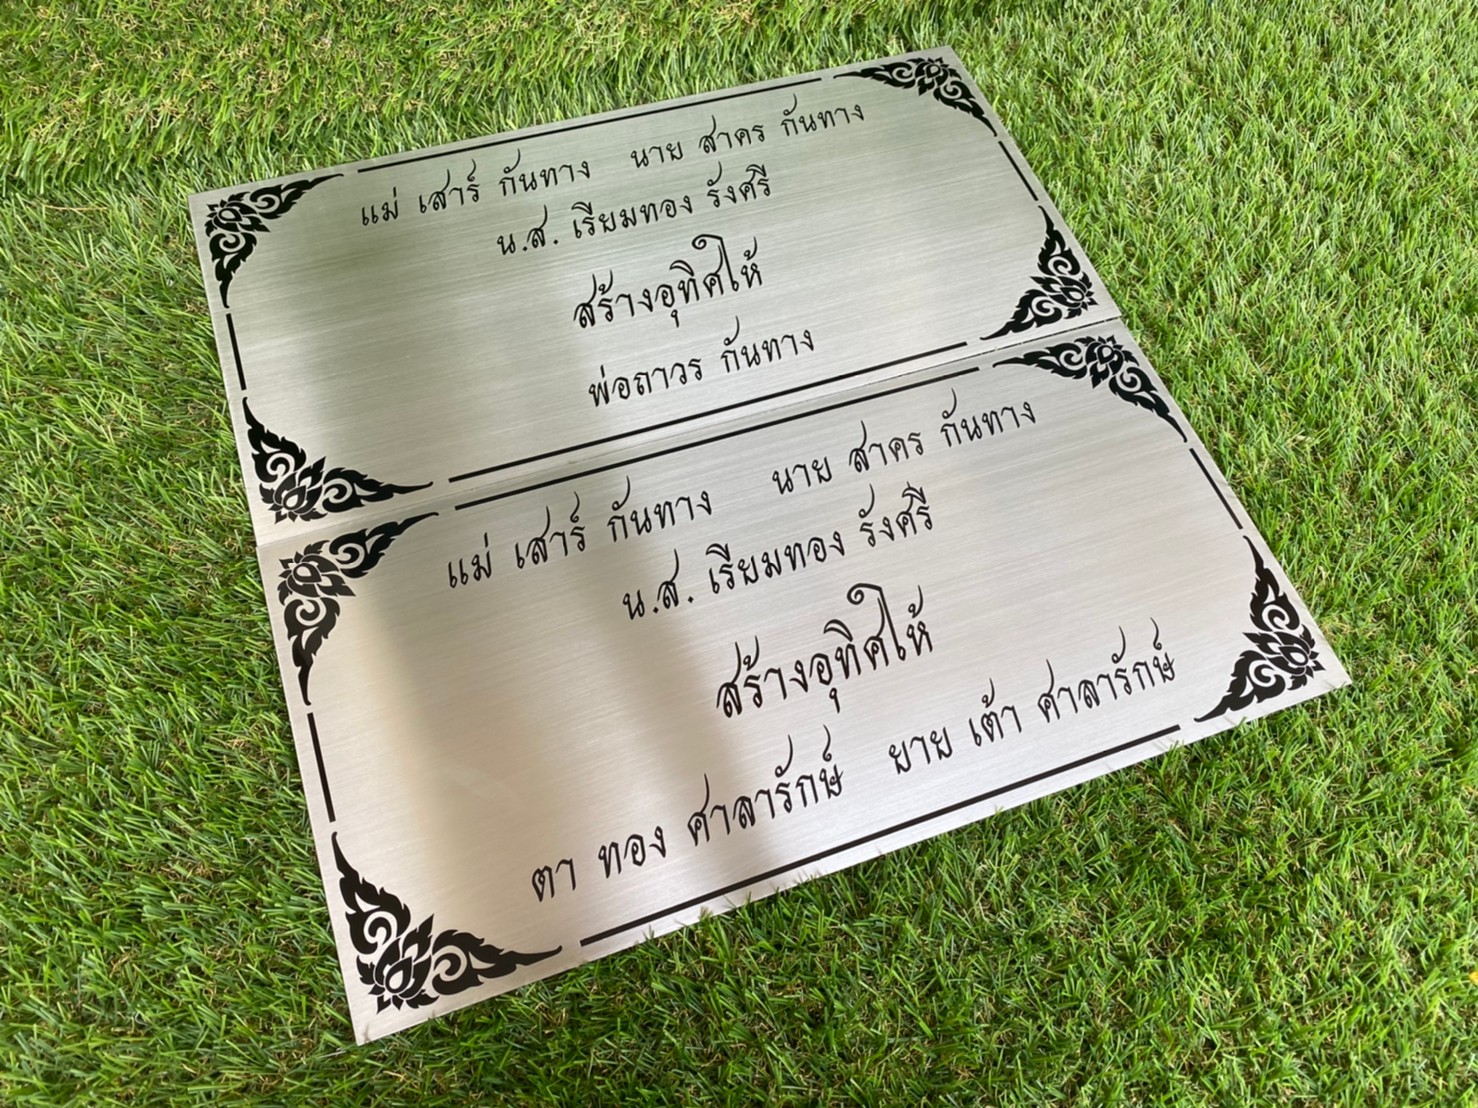 แม่ เสาร์ กันทาง นาย สาคร กันทาง
น.ส. เรียมทอง รังศรี
สร้างอุทิศให้
พ่อถาวร กันทาง
แม่ เสาร์ กันทาง นาย สาคร กันทาง
น.ส. เรียมทอง รังศรี
สร้างอุทิศให้
ตา ทอง ศาลารักษ์ ยาย เต้า ศาลารักษ์